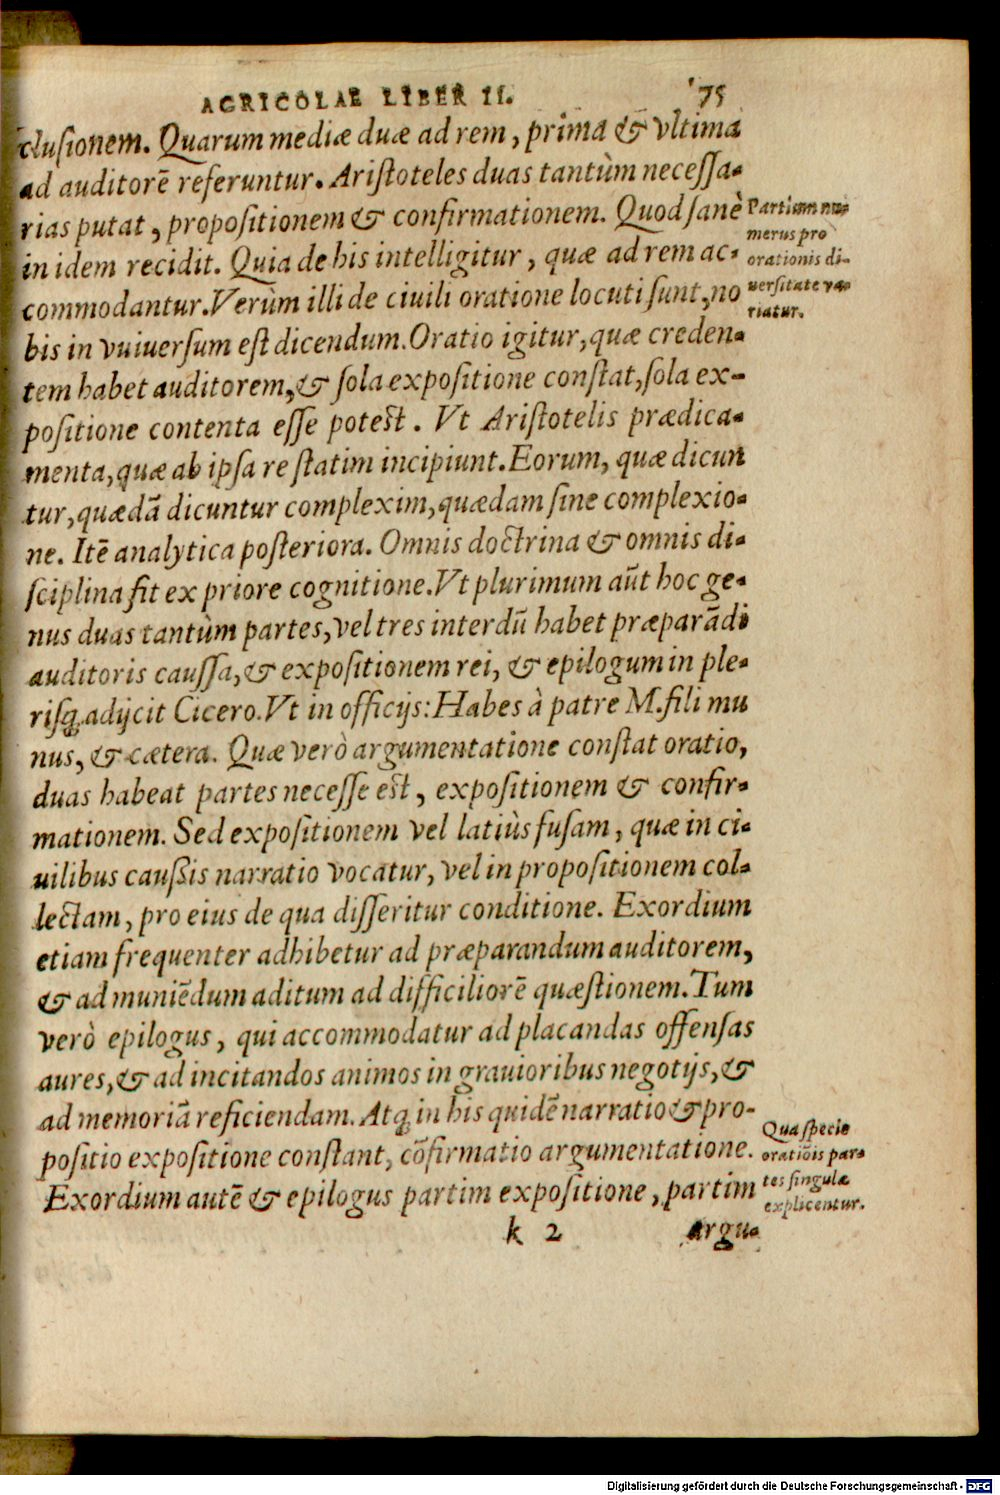 AGRICOLAE LIBER II. 75
clusionem. Quarum mediæ duæ ad rem, prima & vltima
ad auditorē referuntur. Aristoteles duas tantùm necessa-
rias putat, propositionem & confirmationem. Quod sanè
in idem recidit. Quia de his intelligitur, quæ ad rem ac-
commodantur. Verùm illi de ciuili oratione locuti sunt, no
bis in vuiuersum est dicendum. Oratio igitur, quæ creden-
tem habet auditorem, & sola expositione constat, sola ex-
positione contenta esse potest. Vt Aristotelis prædica-
menta, quæ ab ipsa re statim incipiunt. Eorum, quæ dicun
tur, quædā dicuntur complexim, quædam sine complexio-
ne. Itē analytica posteriora. Omnis doctrina & omnis di-
sciplina fit ex priore cognitione. Vt plurimum aūt hoc ge-
nus duas tantùm partes, vel tres interdū habet præparādi
auditoris caussa, & expositionem rei, & epilogum in ple-
risq; adijcit Cicero. Vt in officijs: Habes à patre M. fili mu
nus, & cætera. Quæ verò argumentatione constat oratio,
duas habeat partes necesse est, expositionem & confir-
mationem. Sed expositionem vel latiùs fusam, quæ in ci-
uilibus caußis narratio vocatur, vel in propositionem col-
lectam, pro eius de qua disseritur conditione. Exordium
etiam frequenter adhibetur ad præparandum auditorem,
& ad muniēdum aditum ad difficiliorē quæstionem. Tum
verò epilogus, qui accommodatur ad placandas offensas
aures, & ad incitandos animos in grauioribus negotijs, &
ad memoriā reficiendam. Atq; in his quidē narratio & pro-
positio expositione constant, cōfirmatio argumentatione.
Exordium autē & epilogus partim expositione, partim
k 2 argu-
Partium nu-
merus pro
orationis di-
uersitate va-
riatur.
Qua specie
orationis par-
tes singulæ
explicentur.
Digitalisierung gefördert durch die Deutsche Forschungsgemeinschaft - DFG